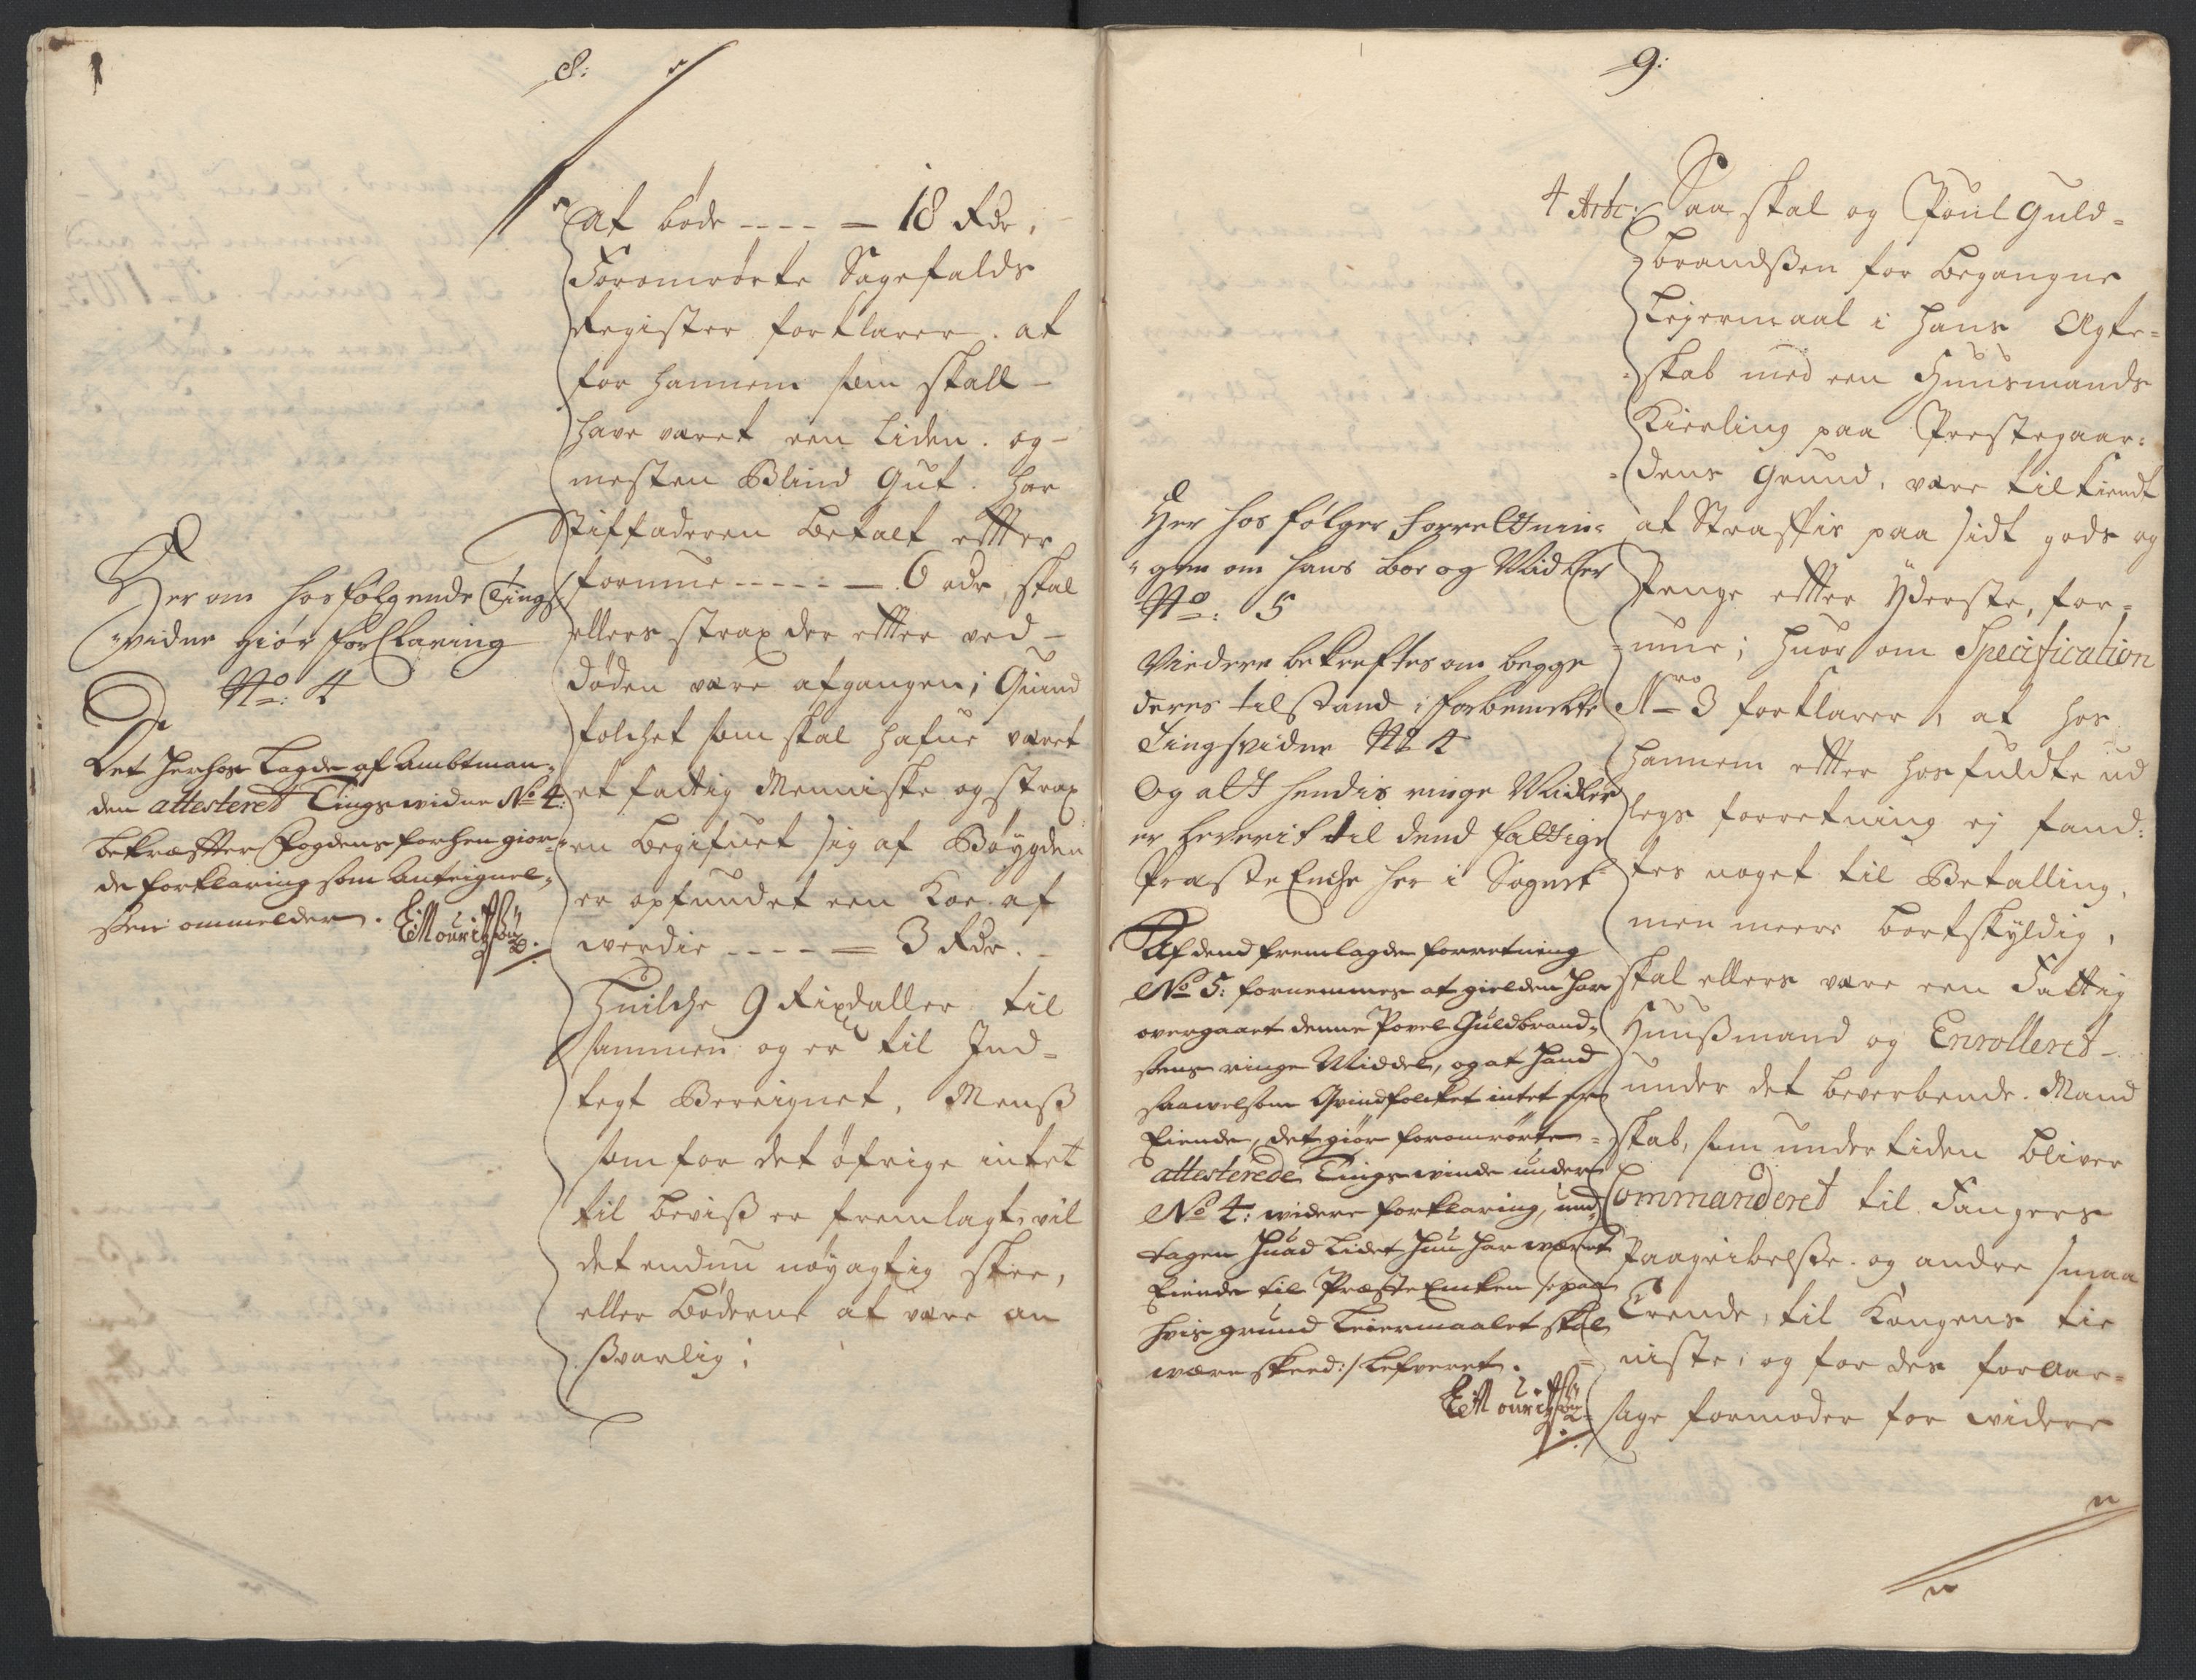 8:
at bøde ---- = 18 Rdr,
Foromrørte Sagefalds
Register forklarer. at
for hannem som skall
have været een liden. og
mesten Blind Gut. har
Stiffaderen betalt efter
formue ----- 6 rdr, skal
ellers strax der efter ved
døden være afgangen; Quind
folchet som skal hafue været
et fattig Menniske og strax
en begifuet sig af Bøygden
er opfundet een Koe. af
werdie ---- = 3 Rdr.
Huilche 9 Rixdaller til
sammen og er til Ind-
tegt Bereignet, Menß
som for det øfrige intet
til beviß er fremlagt, vil
det endnu nøyagtig skee,
eller bøderne at være an
ßvarlig;
Her om hosfølgende Tings
vidne giør forClaring
No: 4
Det herhos Lagde af Ambtman-
den attesteret Tingswidne No 4:
bekræffter Fogdens forhen gior-
de forklaring som Anteignel-
sen ommelder.
9:
4 Artc: Saa skal og Poul Guld-
brandßen for begangne
Leyermaal i hans Ægte-
skab med een Huusmands
Kierling paa Prestegaar-
dens Grund, være tilkiendt
at Straffis paa sidt gods og
Penge efter Yderste, for-
mue; huor om Specification
Nro 3 forklarer, at hos
hannem efter hosfuldte ud
legs forretning ej fand-
tes noget til Betalling,
men meere bortskyldig,
skal ellers være een Fattig
Huußmand og Enrolleret
under det beverbende. Mand
skab, som under tiden bliver
Commanderet til Fangers
Paagribelße. og andre smaa
Erende, til Kongens tie
niste; og for den foraar-
sage formoder for widere
Her hos følger Forretnin-
gen om hans boe og Midler
No: 5
Viedere bekreftes om begge
deres tilstand i forbemelte
Tingsvidne No 4
Og alt hendis ringe Midler
er leverit til dend fattige
Præste Enche her i Sognet
Af dend fremlagde forretning
No 5: fornemmes at gielden har
overgaaet denne Povel Guldbrand-
sens ringe Middel, og at hand
saawelsom Qvindfolcket intet er
Eiende, det giør foromrørte
attesterede Tings winde under
No 4: widere forklaring, und-
tagen huad Lidet hun har været
Eiende til Præste Encken /: paa
hvis grund Leiermaalet skal
være skeed :/ Lefveret.